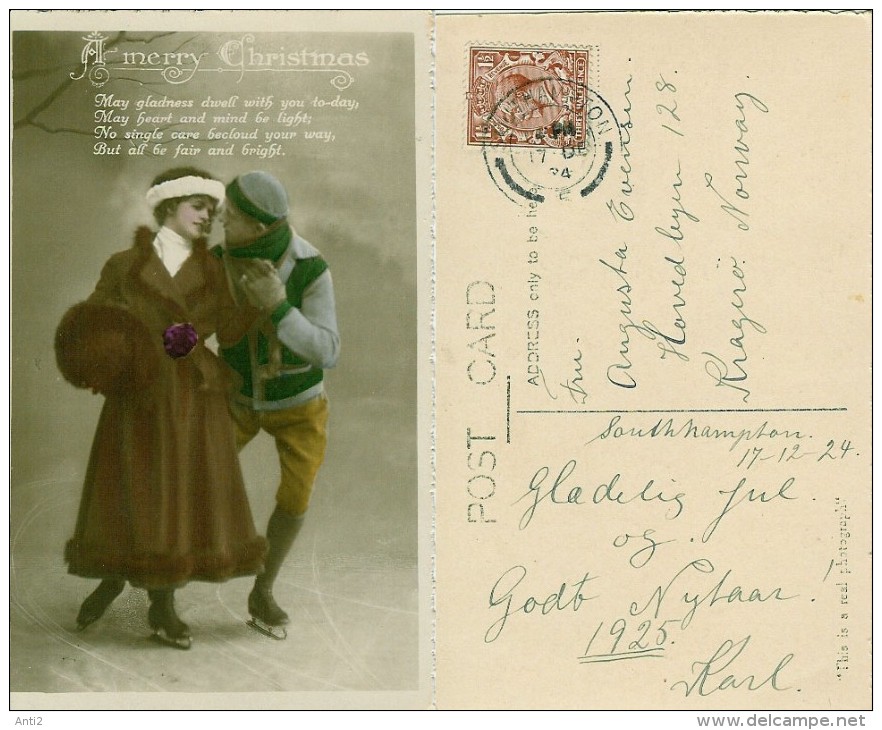 A merry Christmas
May gladness dwell with you to-day,
May heart and mind be light;
No single care becloud your way,
But all be fair and bright.
POST CARD
ADDRESS only to be here
1½
1½
17 DE
24
Fru.
Augusta Evensen.
Hovedbyen 128.
Kragerö. Norway.
Southhampton.
17-12-24.
Glædelig Jul.
og.
Godt Nytaar!
1925.
Karl.
"This is a real photograph"
Anti2
www.delcampe.net